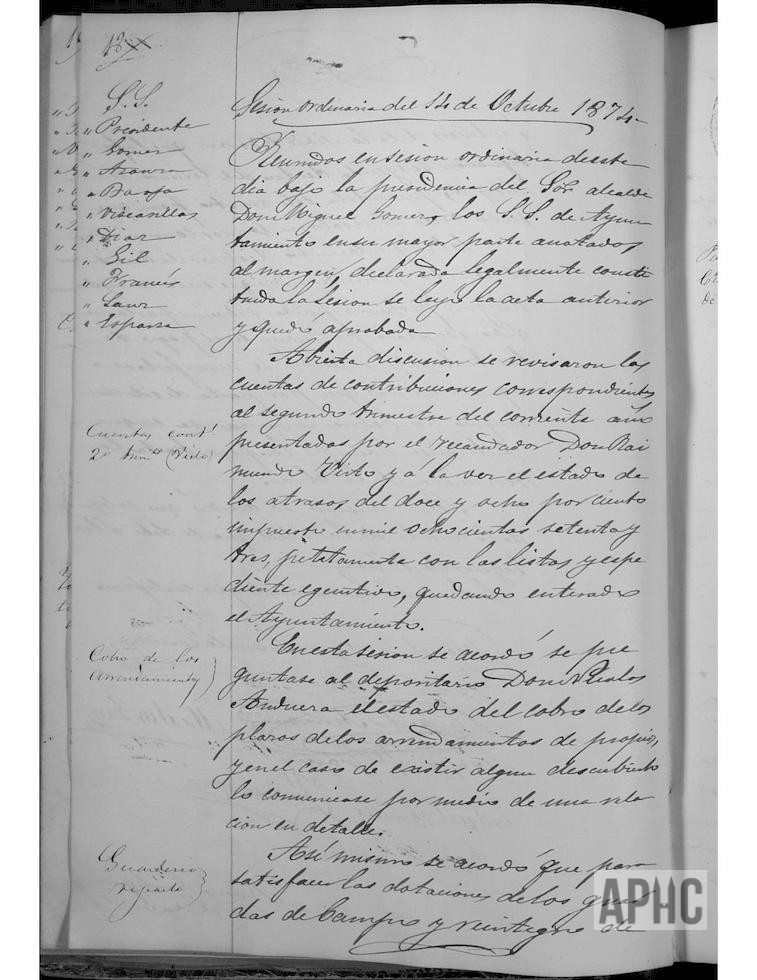 S.S.
" Presidente
" Gomez
" Azanza
" Baroja
" Viscasillas
" Diaz
" Gil
" Francés
" Sanz
" Esparza
Sesion ordinaria del 14 de Octubre 1874
Reunidos en sesion ordinaria de este
dia bajo la presidencia del Sor. alcalde
Don Miguel Gomez, los S.S. de Ayun
tamiento en su mayor parte anotados
al margen, declarada legalmente consti
tuida la sesion se leyó la acta anterior
y quedó aprobada
Abierta discusion se revisaron las
cuentas de contribuciones correspondientes
al segundo trimestre del corriente año
presentadas por el recaudador Don Rai
mundo Visto y á la ver el estado de
los atrasos del doce y ocho por ciento
impuesto en mil ochocientos setenta y
tres, juntamente con las listas y espe
diente egecutivo, quedando enterado
el Ayuntamiento.
Cuentas contt.
2º trim.e (Visto)
En esta sesion se acordó se pre
guntase al depositario Don
Anduera el estado del cobro de los
plazos de los arrendamientos de propios,
y en el caso de existir algun descubierto
lo comunicase por medio de una rela
cion en detalle.
Cobro de los
arrendamientos
Asi mismo se acordó que para
satisfacer las dotaciones de los guar
das de Campo y reintegro de
Guarderio
reparto
APHC